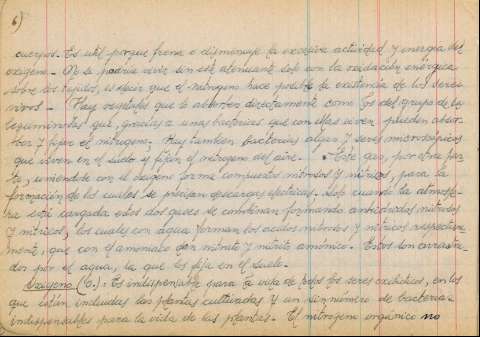 6)
cuerpos. Es util porque frena o disminuye la excesiva actividad y energia del
oxigeno. - No se podria vivir sin este atenuante solo con la oxidación enérgica
sobre los tejidos, es decir que el nitrógeno hace posible la existencia de los seres
vivos. - Hay vegetales que lo absorben directamente como los del grupo de las
leguminosas que, gracias a unas bacterias que con ellas viven pueden absor-
ber y fijar el nitrogeno. Hay tambien bacterias algas y seres microscópicos
que viven en el suelo y fijan el nitrogeno del aire. - Este gas, por otra par-
te, uniendole con el oxigeno forma compuestos nitrosos y nitricos, para la
formación de los cuales se precisan descargas electricas. Solo cuando la atmosfe-
ra está cargada estos dos gases se combinan formando anhidridos nitrosos
y nitricos, los cuales con agua forman los acidos nitrosos y nitricos respectiva-
mente, que con el amoniaco dan nitrato y nitrito amónico. Estos son arrastra-
dos por el agua, la que los fija en el suelo.
Oxigeno (O.): Es indispensable para la vida de todos los seres aerobicos, en los
que están incluidas las plantas cultivadas y un sin número de bacterias
indispensables para la vida de las plantas. El nitrogeno orgánico no